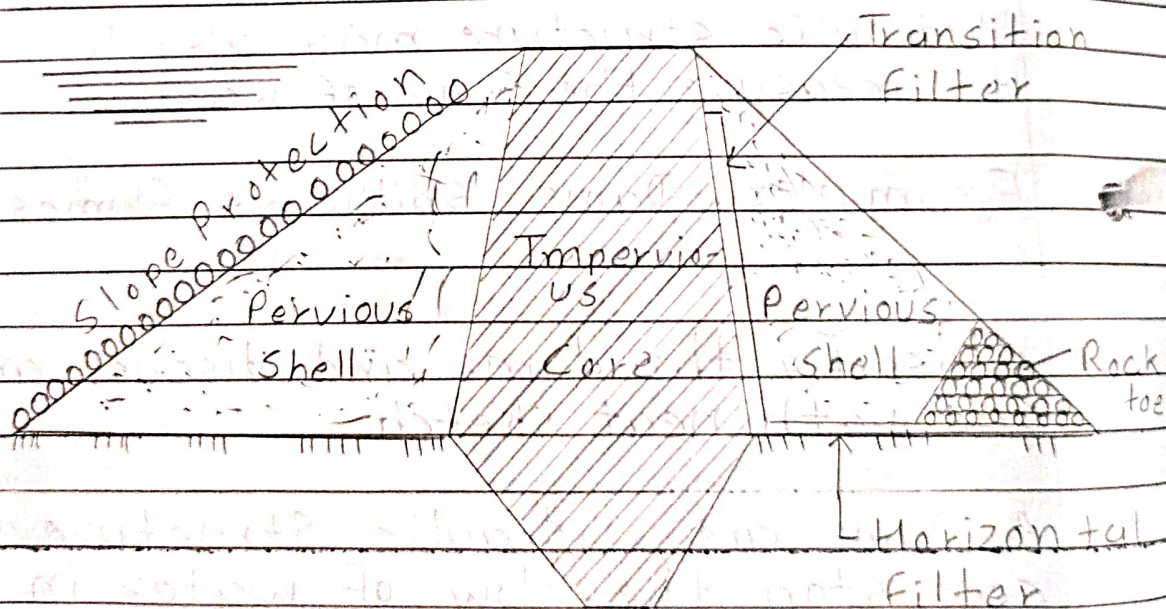 Transition
Filter
Slope Protection
Impervio-
us
Core
Pervious
Shell
Pervious
Shell
Rock
toe
Horizontal
Filter